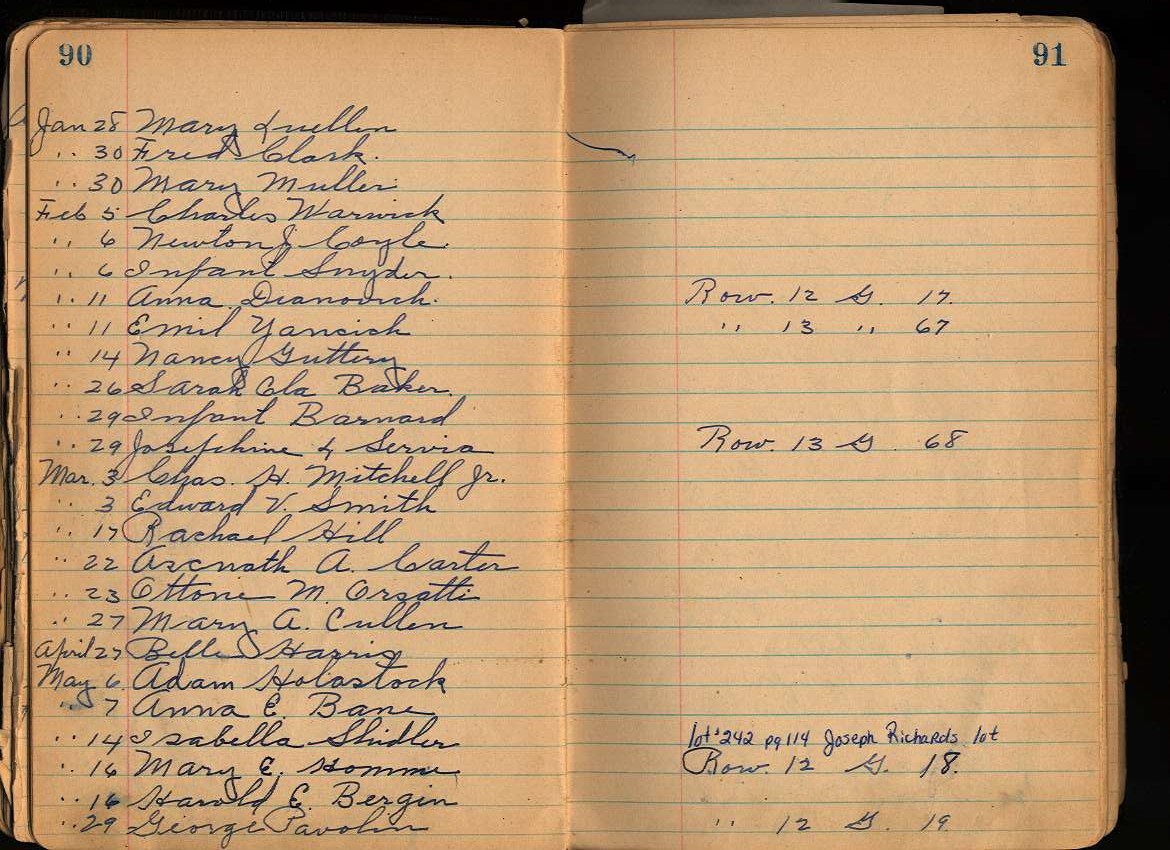 90
Jan 28 Mary Luellen
" 30 Fred Clark.
" 30 Mary Muller
Feb 5 Charles Warwick
" 6 Newton J Coyle.
" 6 Infant Snyder.
" 11 Anna Dianovich.
" 11 Emil Yancick
" 14 Nancy Guttery
" 26 Sarah Ela Baker.
" 29 Infant Barnard
" 29 Josephine L Servia
Mar. 3 Chas. H. Mitchell Jr.
" 3 Edward V. Smith
" 17 Rachael Hill
" 22 Ascnath A. Carter
" 23 Ottone M. Orsatti
" 27 Mary A. Cullen
April 27 Belle Harris
May 6 Adam Holastock
" 7 Anna E. Bane
" 14 Isabella Shidler
" 16 Mary E. Homme
" 16 Harold E. Bergin
" 29 George Pavolin
91
Row. 12 G. 17.
" 13 " 67
Row. 13 G. 68
lot #242 pg 114 Joseph Richards lot
Row. 12 G. 18.
" 12 G. 19